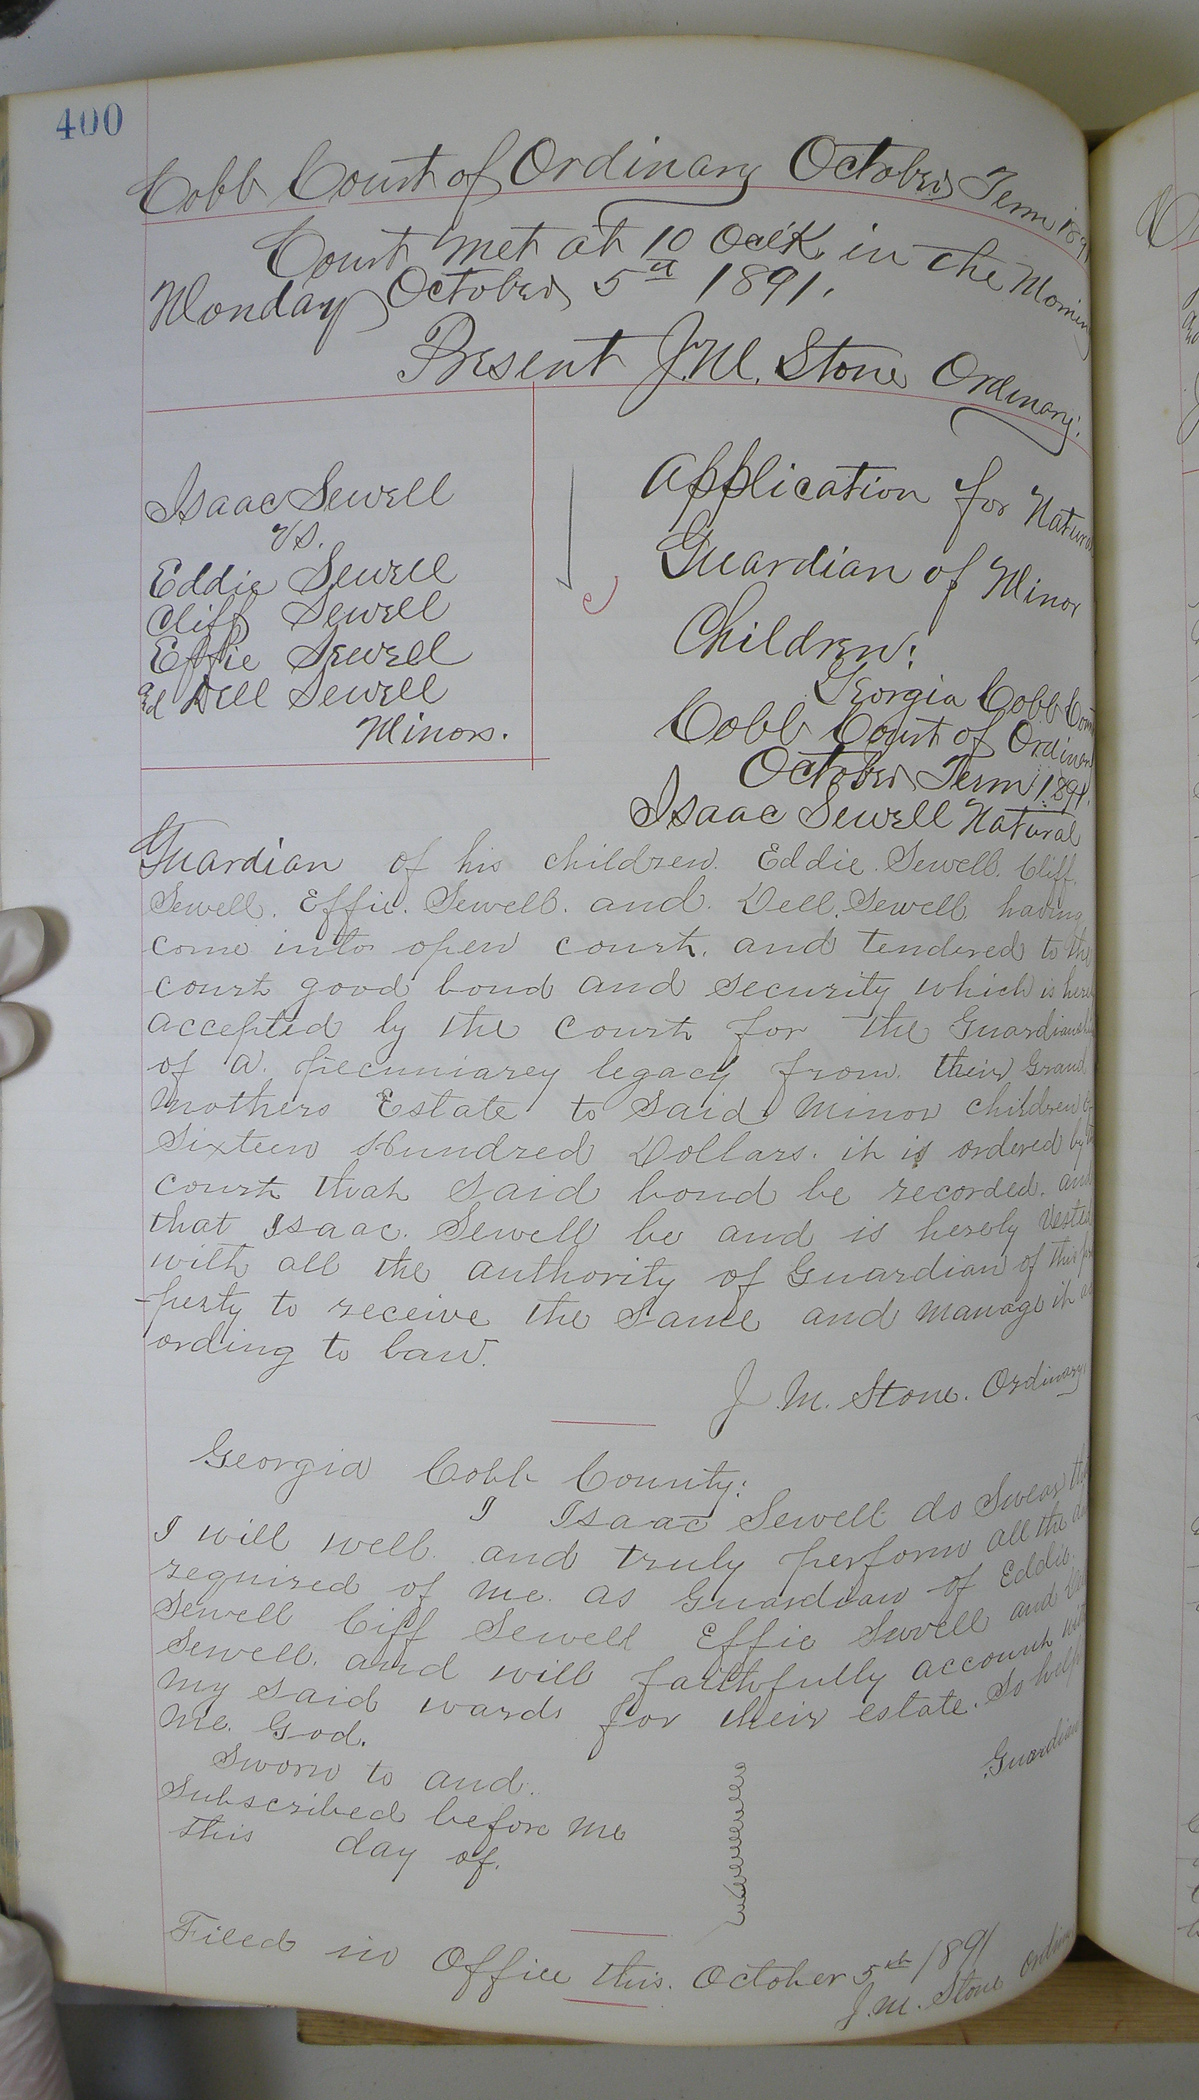 400
Cobb Court of Ordinary October Term 189
Court met at 10 Oclk, in the Mornin
Monday October 5th 1891.
Present J.M. Stone Ordinary.
Isaac Sewell
vs.
Eddie Sewell
Cliff Sewell
Effie Sewell
Dell Sewell
Minors.
Application for Natura
Guardian of Minor
Children:
Georgia Cobb Coun
Cobb Court of Ordinar
October Term 1891.
Isaac Sewell Natural
Guardian of his children. Eddie. Sewell. Cliff.
Sewell. Effie. Sewell. and. Dell. Sewell having
come into open court. and tendered to the
court good bond and security which is here
accepted by the court for the Guardianshi
of a. pecuniarey legacy from. their Grand
mothers Estate to said minor children of
Sixteen Hundred Dollars. it is ordered by the
court that said bond be recorded. and
that Isaac. Sewell be and is herely vested
with all the authority of Guardian of this pr
-perty to receive the same and manage it ac
ording to law.
J. M. Stone. Ordinary.
Georgia Cobb County:
I Isaac Sewell do Swear th
I will well. and truly perform all the du
required of me. as Guardian of Eddie.
Sewell Ciff Sewell Effie Sewell and
Sewell. and will faithfully account wit
my said wards for their estate. So help
me. God.
Guardian
Sworn to and.
Subscribed before me
this day of.
Filed in Office this. October 5th 1891
J. M. Stone Ordin